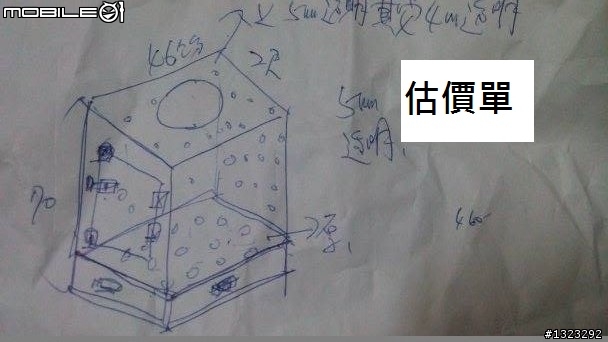 mobile01
上5mm透明其它4mm透明
46公分
2尺
5mm
透明
估價單
70
460
#1323292